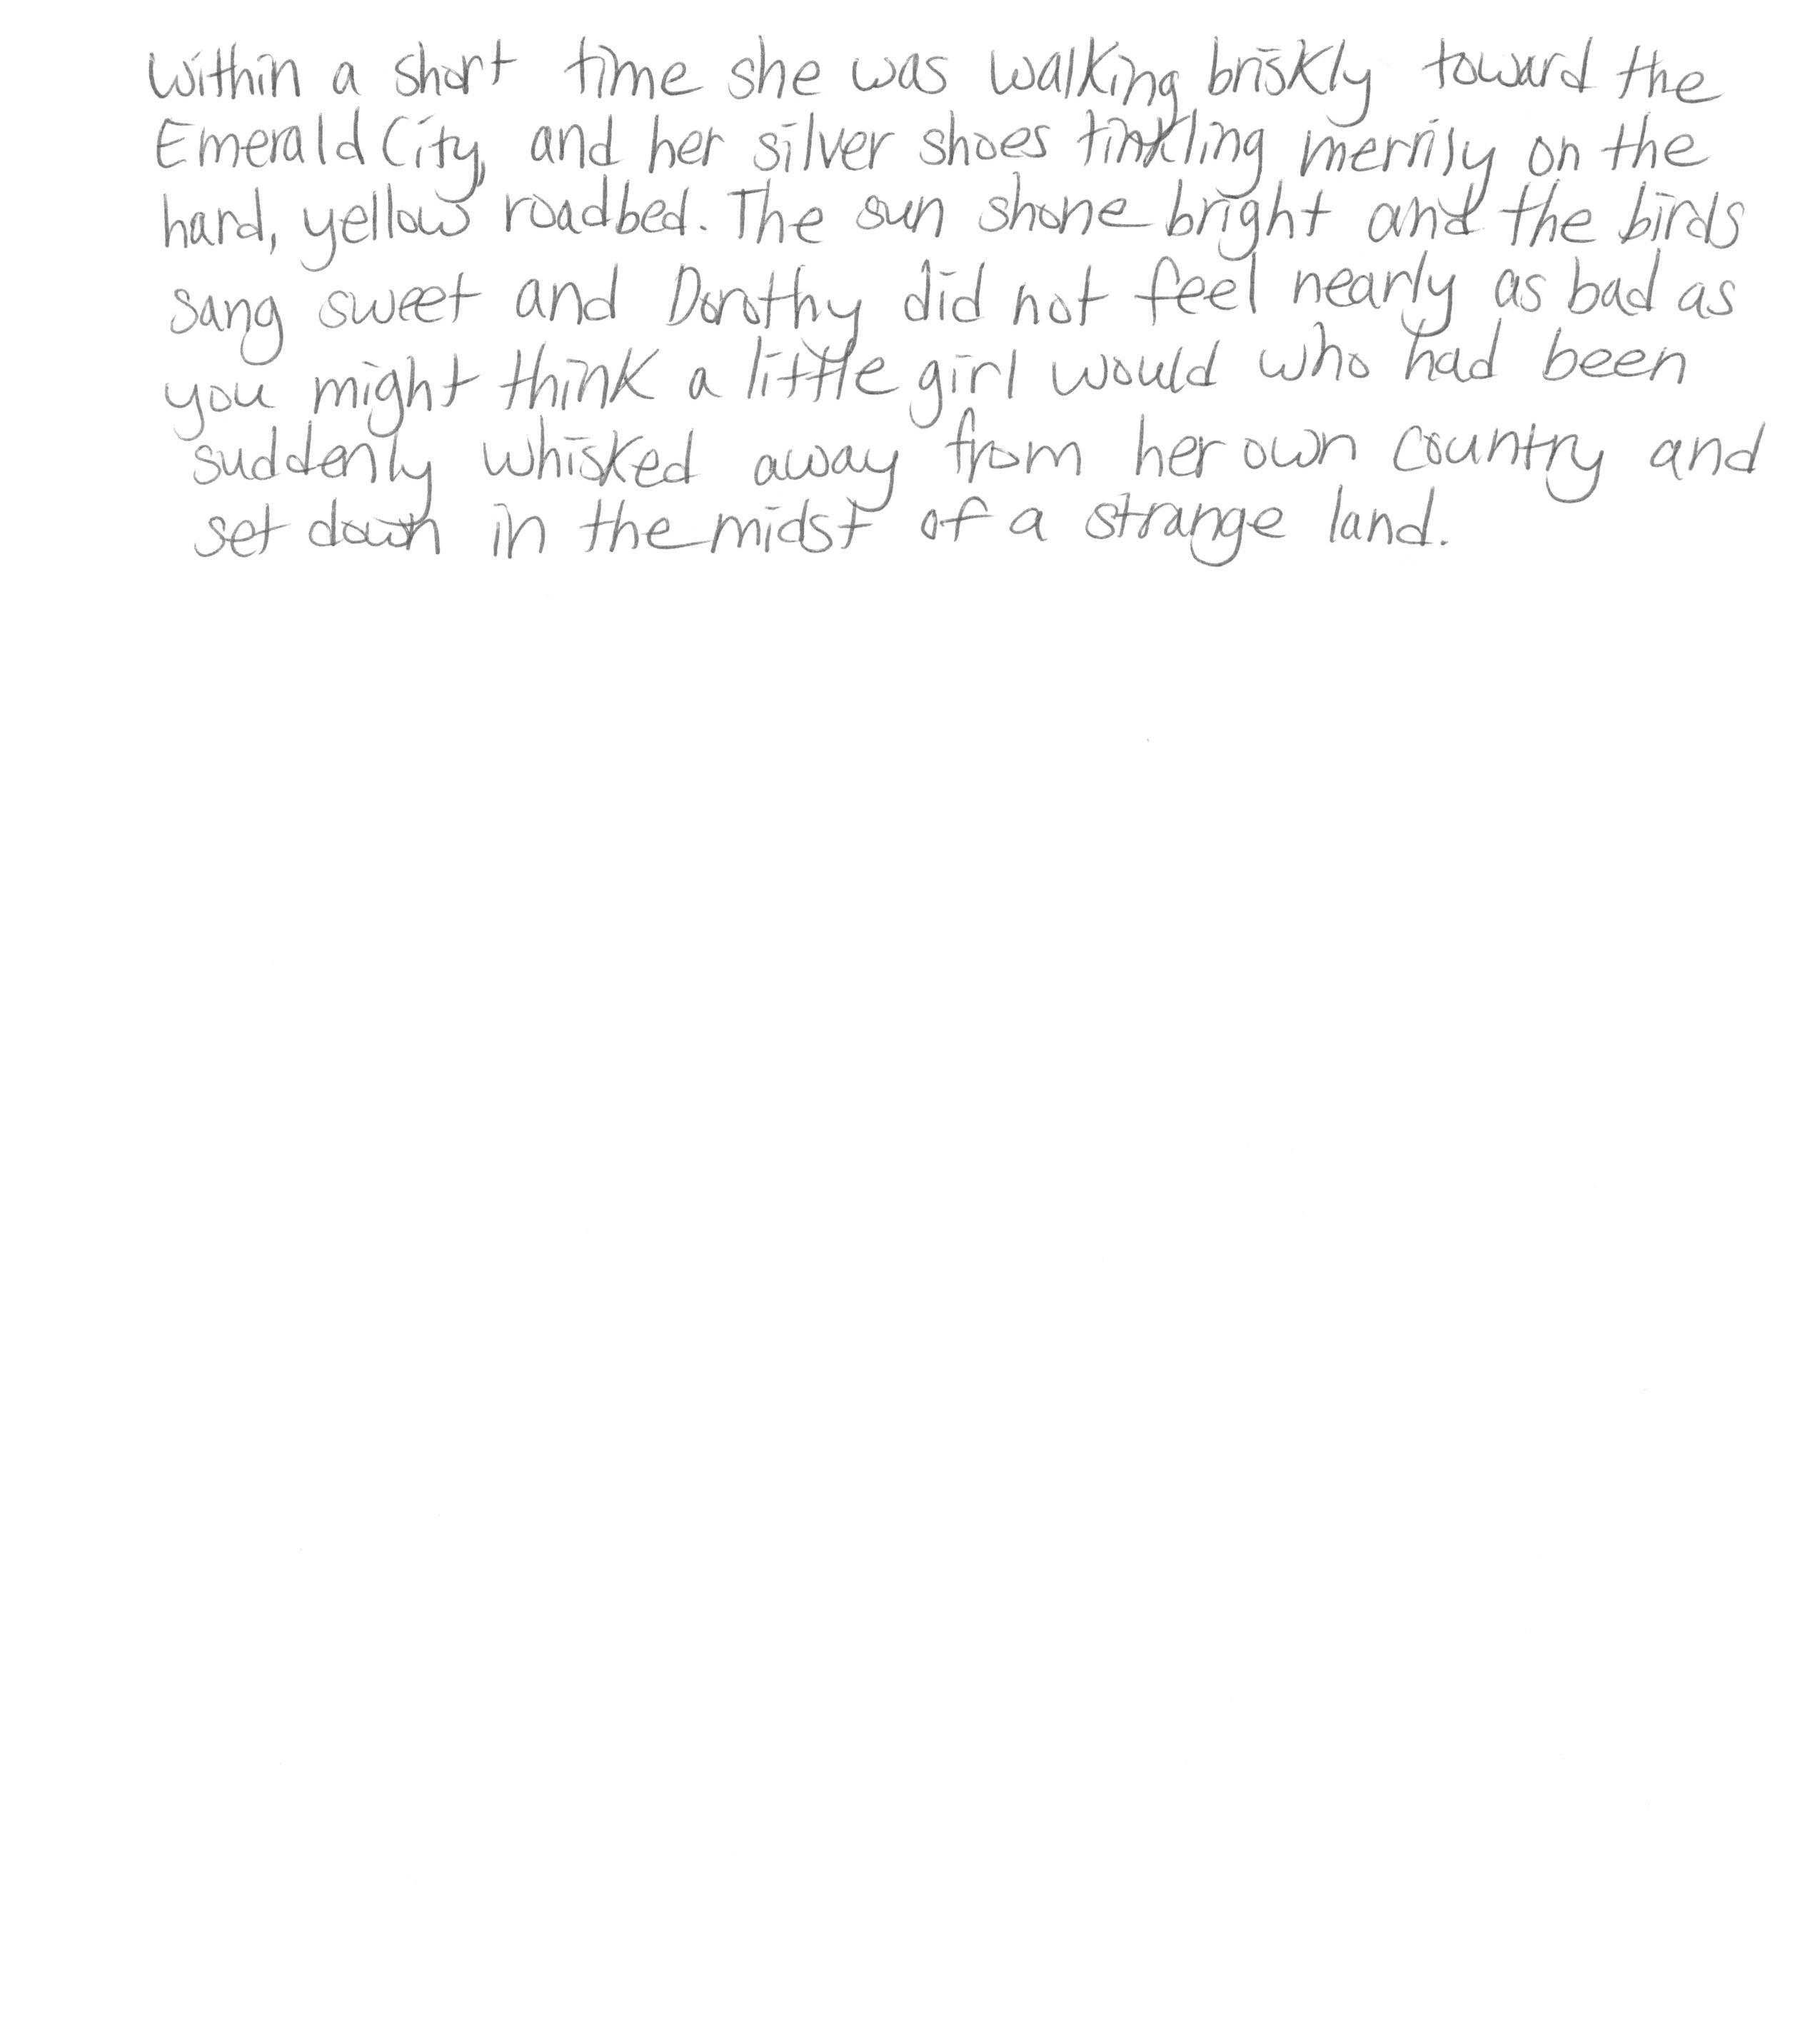 Within a short time she was walking briskly toward the
Emerald City, and her silver shoes tinkling merrily on the
hard, yellow roadbed. The sun shone bright and the birds
sang sweet and Dorothy did not feel nearly as bad as
you might think a little girl would who had been
suddenly whisked away from her own country and
set down in the midst of a strange land.